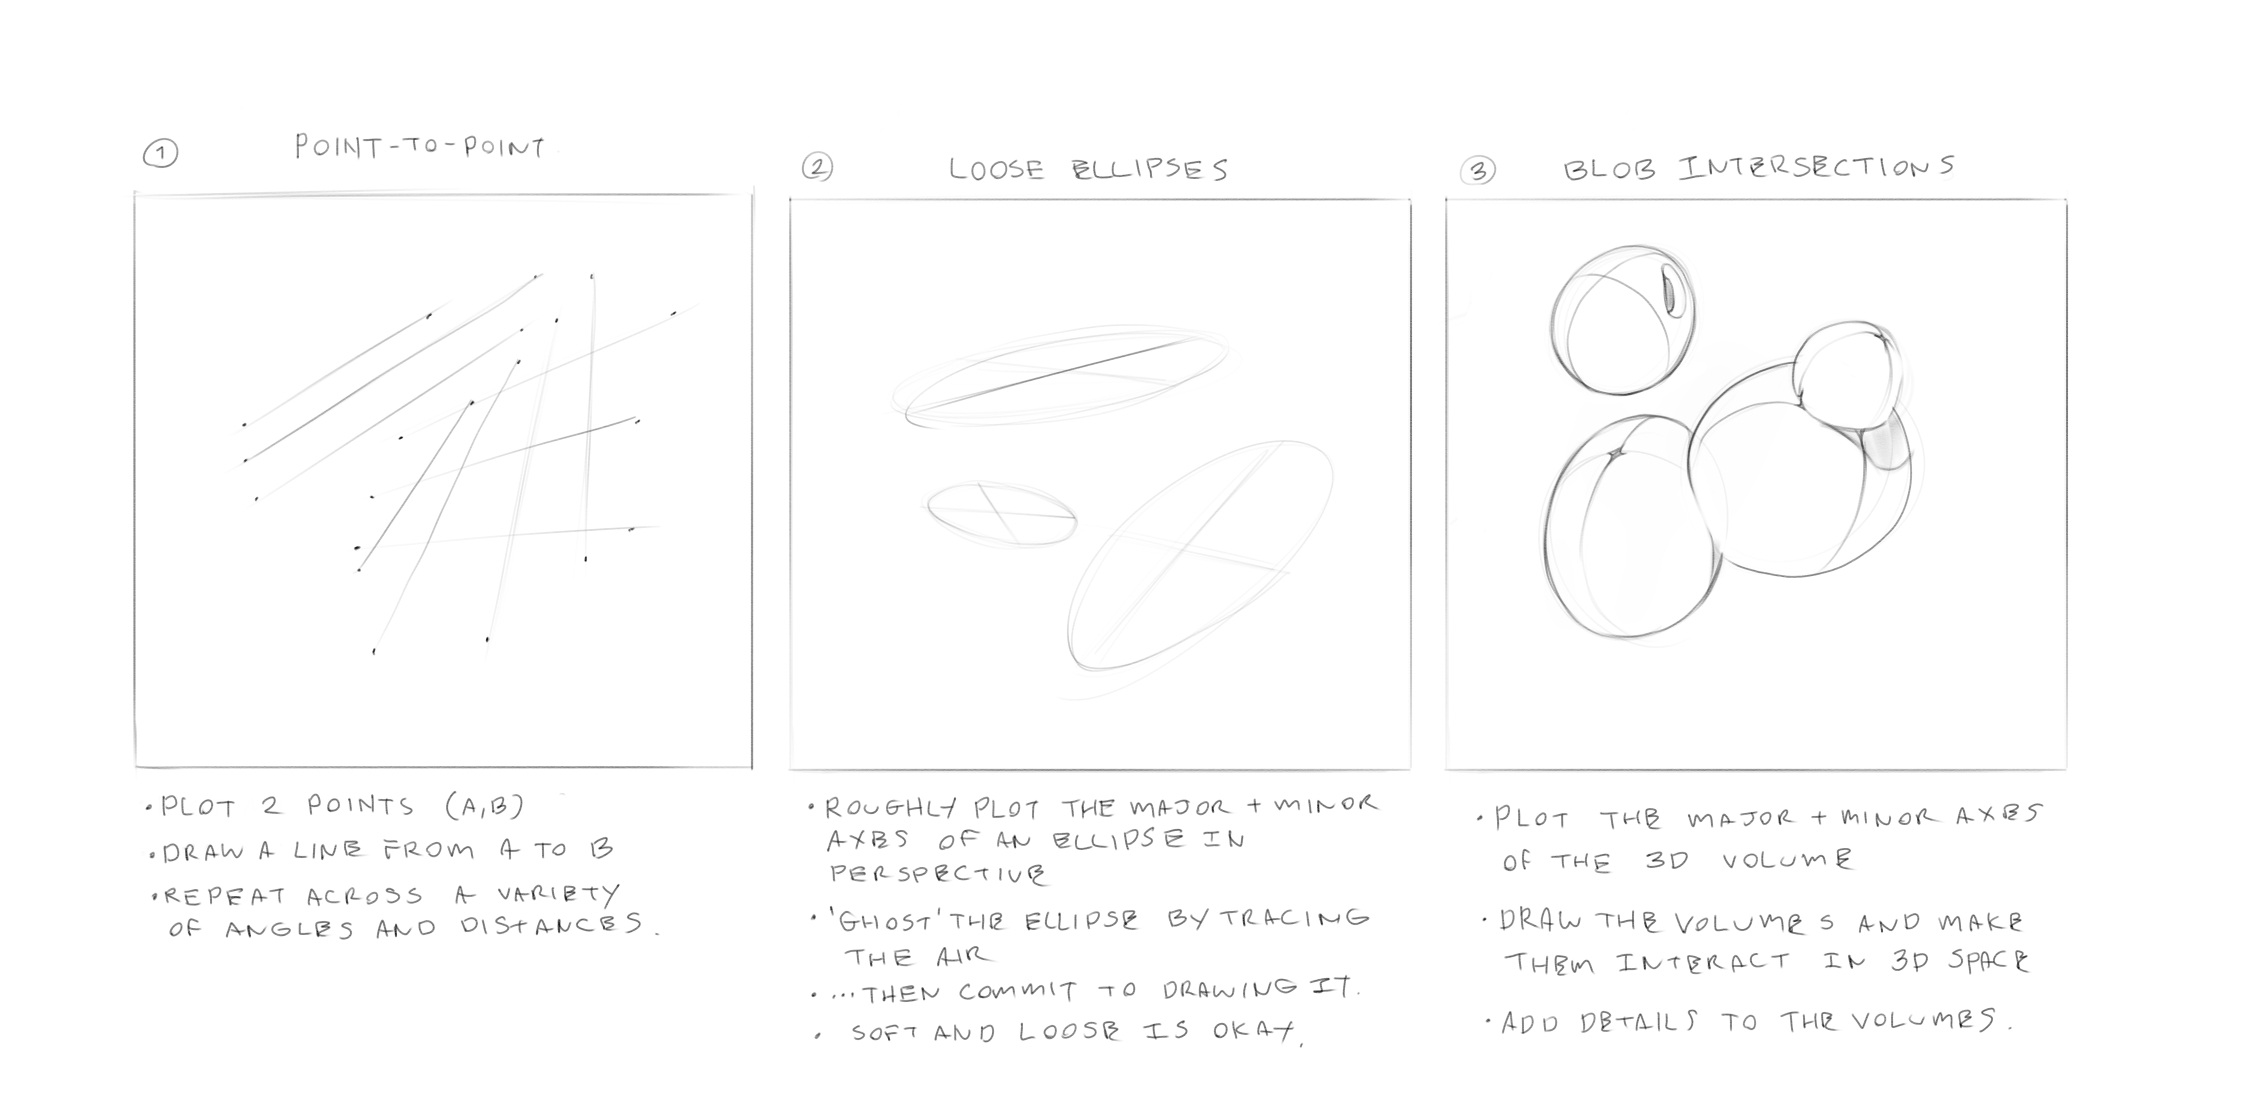 ① POINT-TO-POINT
• PLOT 2 POINTS (A,B)
• DRAW A LINE FROM A TO B
• REPEAT ACROSS A VARIETY
OF ANGLES AND DISTANCES.
② LOOSE ELLIPSES
• ROUGHLY PLOT THE MAJOR + MINOR
AXES OF AN ELLIPSE IN
PERSPECTIVE
• 'GHOST' THE ELLIPSE BY TRACING
THE AIR
• ...THEN COMMIT TO DRAWING IT.
• SOFT AND LOOSE IS OKAY.
③ BLOB INTERSECTIONS
• PLOT THE MAJOR + MINOR AXES
OF THE 3D VOLUME
• DRAW THE VOLUMES AND MAKE
THEM INTERACT IN 3D SPACE
• ADD DETAILS TO THE VOLUMES.